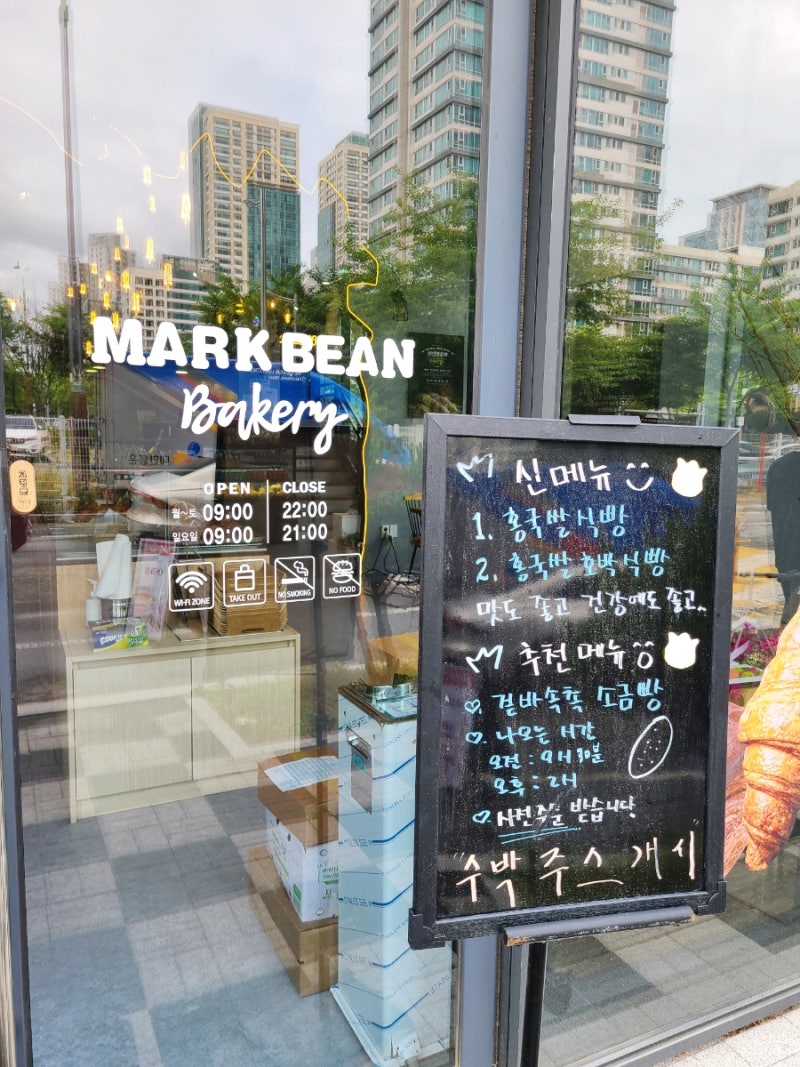 MARK BEAN
Bakery
OPEN CLOSE
월~토 09:00 22:00
일요일 09:00 21:00
WI-FI ZONE
TAKE OUT
NO SMOKING
NO FOOD
신메뉴
1. 홍국쌀식빵
2. 홍국쌀호박식빵
맛도 좋고 건강에도 좋고..
추천메뉴
겉바속촉 소금빵
나오는 시간
오전 : 9시 30분
오후 : 2시
사전주문 받습니다
"수박 쥬스 개시"